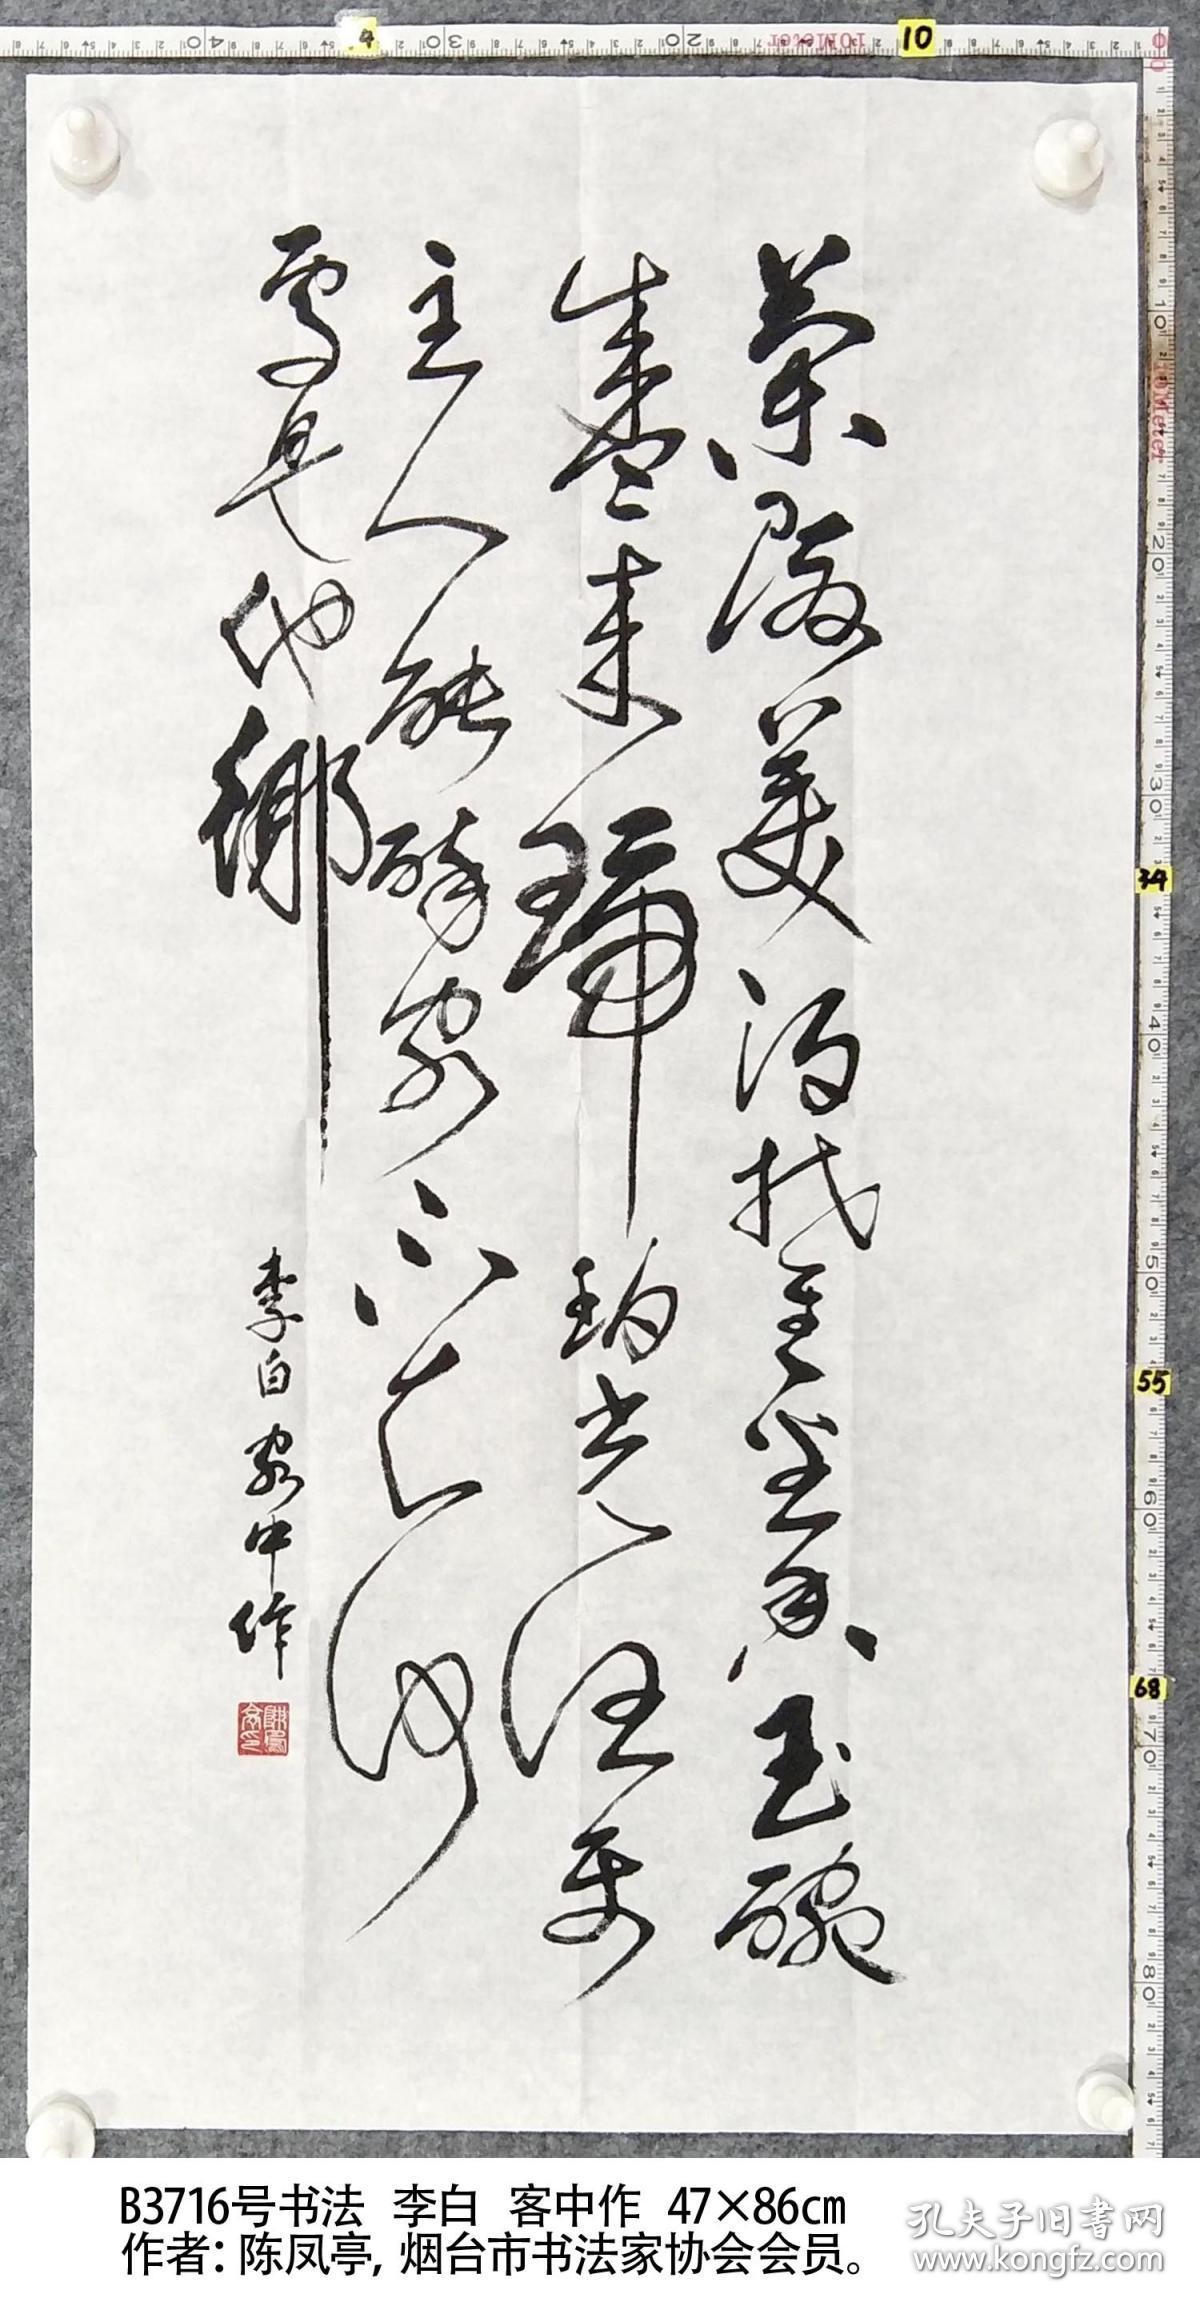 蘭陵美酒鬱金香玉碗
盛来琥珀光但使
主人能醉客不知何
處是他鄉
李白客中作
陳鳳亭印
4
10
34
55
68
10Meter
10Meter
B3716号书法 李白 客中作 47×86cm
作者：陈凤亭，烟台市书法家协会会员。
孔夫子旧书网
www.kongfz.com